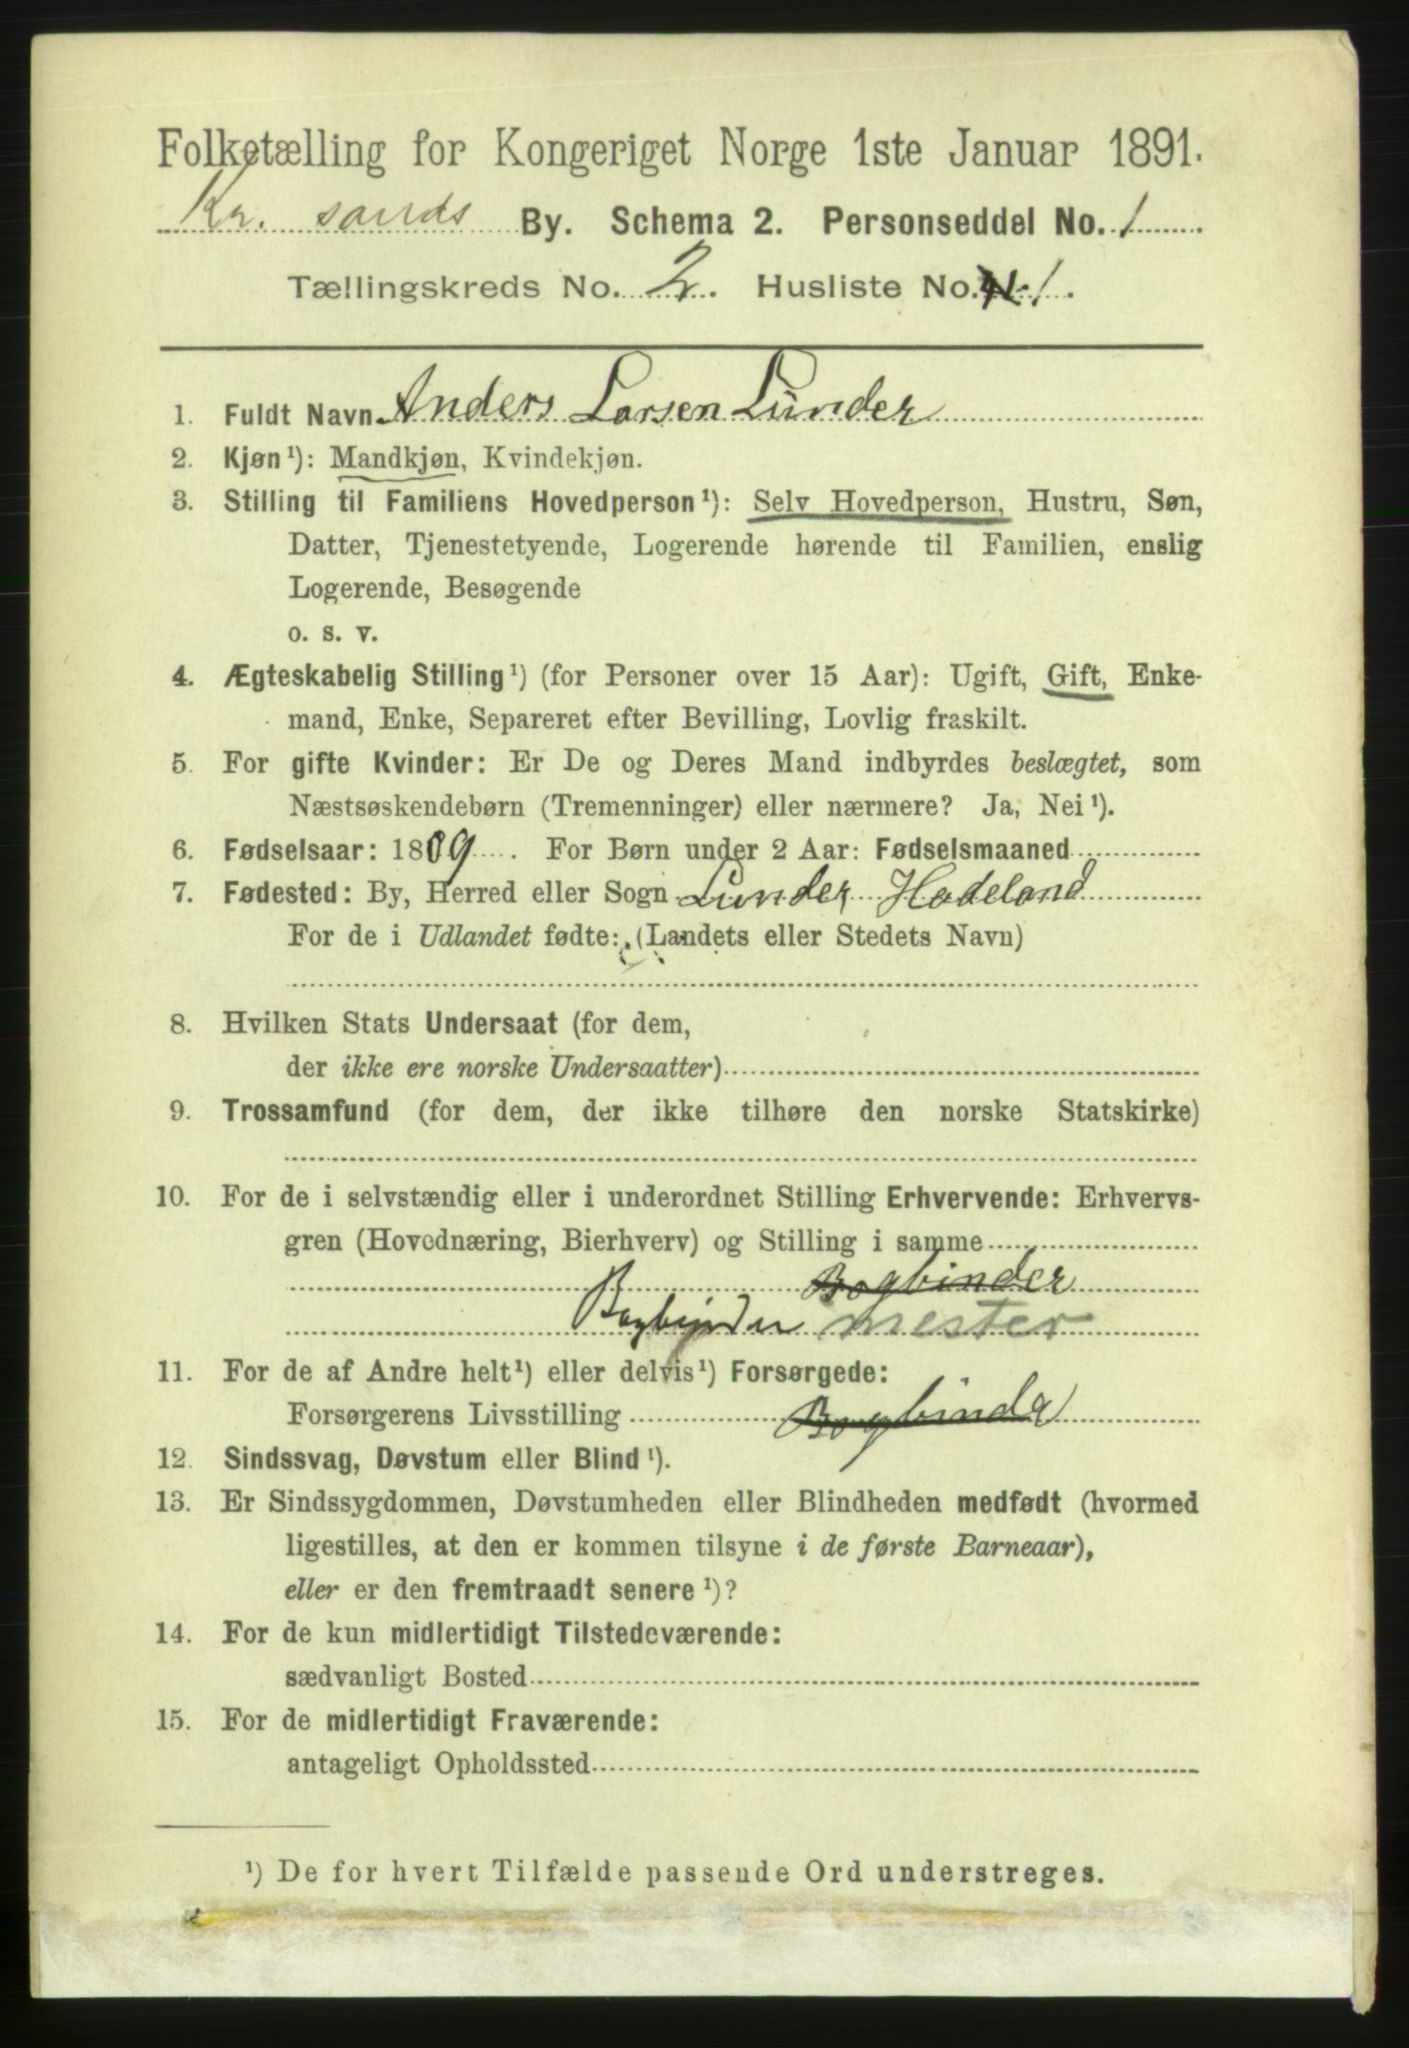 Folketælling for Kongeriget Norge 1ste Januar 1891.
Kr. sands By. Schema 2. Personseddel No. 1
Tællingskreds No. 2. Husliste No. 1.
1. Fuldt Navn Anders Larsen Lunder
2. Kjøn¹): Mandkjøn, Kvindekjøn.
3. Stilling til Familiens Hovedperson¹): Selv Hovedperson, Hustru, Søn,
Datter, Tjenestetyende, Logerende hørende til Familien, enslig
Logerende, Besøgende
o. s. v.
4. Ægteskabelig Stilling¹) (for Personer over 15 Aar): Ugift, Gift, Enke-
mand, Enke, Separeret efter Bevilling, Lovlig fraskilt.
5. For gifte Kvinder: Er De og Deres Mand indbyrdes beslægtet, som
Næstsøskendebørn (Tremenninger) eller nærmere? Ja, Nei¹).
6. Fødselsaar: 1809. For Børn under 2 Aar: Fødselsmaaned
7. Fødested: By, Herred eller Sogn Lunder Hadeland
For de i Udlandet fødte: (Landets eller Stedets Navn)
8. Hvilken Stats Undersaat (for dem,
der ikke ere norske Undersaatter)
9. Trossamfund (for dem, der ikke tilhøre den norske Statskirke)
10. For de i selvstændig eller i underordnet Stilling Erhvervende: Erhvervs-
gren (Hovednæring, Bierhverv) og Stilling i samme
Bogbinder
Bogbinder mester
11. For de af Andre helt¹) eller delvis¹) Forsørgede:
Forsørgerens Livsstilling Bogbinder
12. Sindssvag, Døvstum eller Blind¹).
13. Er Sindssygdommen, Døvstumheden eller Blindheden medfødt (hvormed
ligestilles, at den er kommen tilsyne i de første Barneaar),
eller er den fremtraadt senere¹)?
14. For de kun midlertidigt Tilstedeværende:
sædvanligt Bosted
15. For de midlertidigt Fraværende:
antageligt Opholdssted
¹) De for hvert Tilfælde passende Ord understreges.